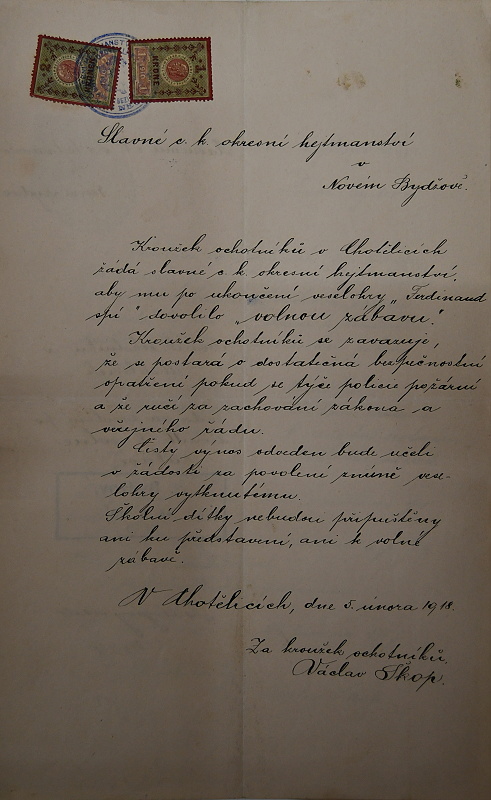 Slavné c. k. okresní hejtmanství
v
Novém Bydžově.
Kroužek ochotníků v Chotělicích
žádá slavné c. k. okresní hejtmanství,
aby mu po ukončení veselohry „Ferdinand
spí" dovolilo „volnou zábavu".
Kroužek ochotníků se zavazuje,
že se postará o dostatečná bezpečnostní
opatření pokud se týče policie požární
a že ručí za zachování zákona a
veřejného řádu.
Čistý výnos odveden bude účeli
v žádosti za povolení zmíně vese-
lohry vytknutému.
Školní dítky nebudou připuštěny
ani ku představení, ani k volné
zábavě.
V Chotělicích, dne 5. února 1918.
Za kroužek ochotníků.
Václav Škop.